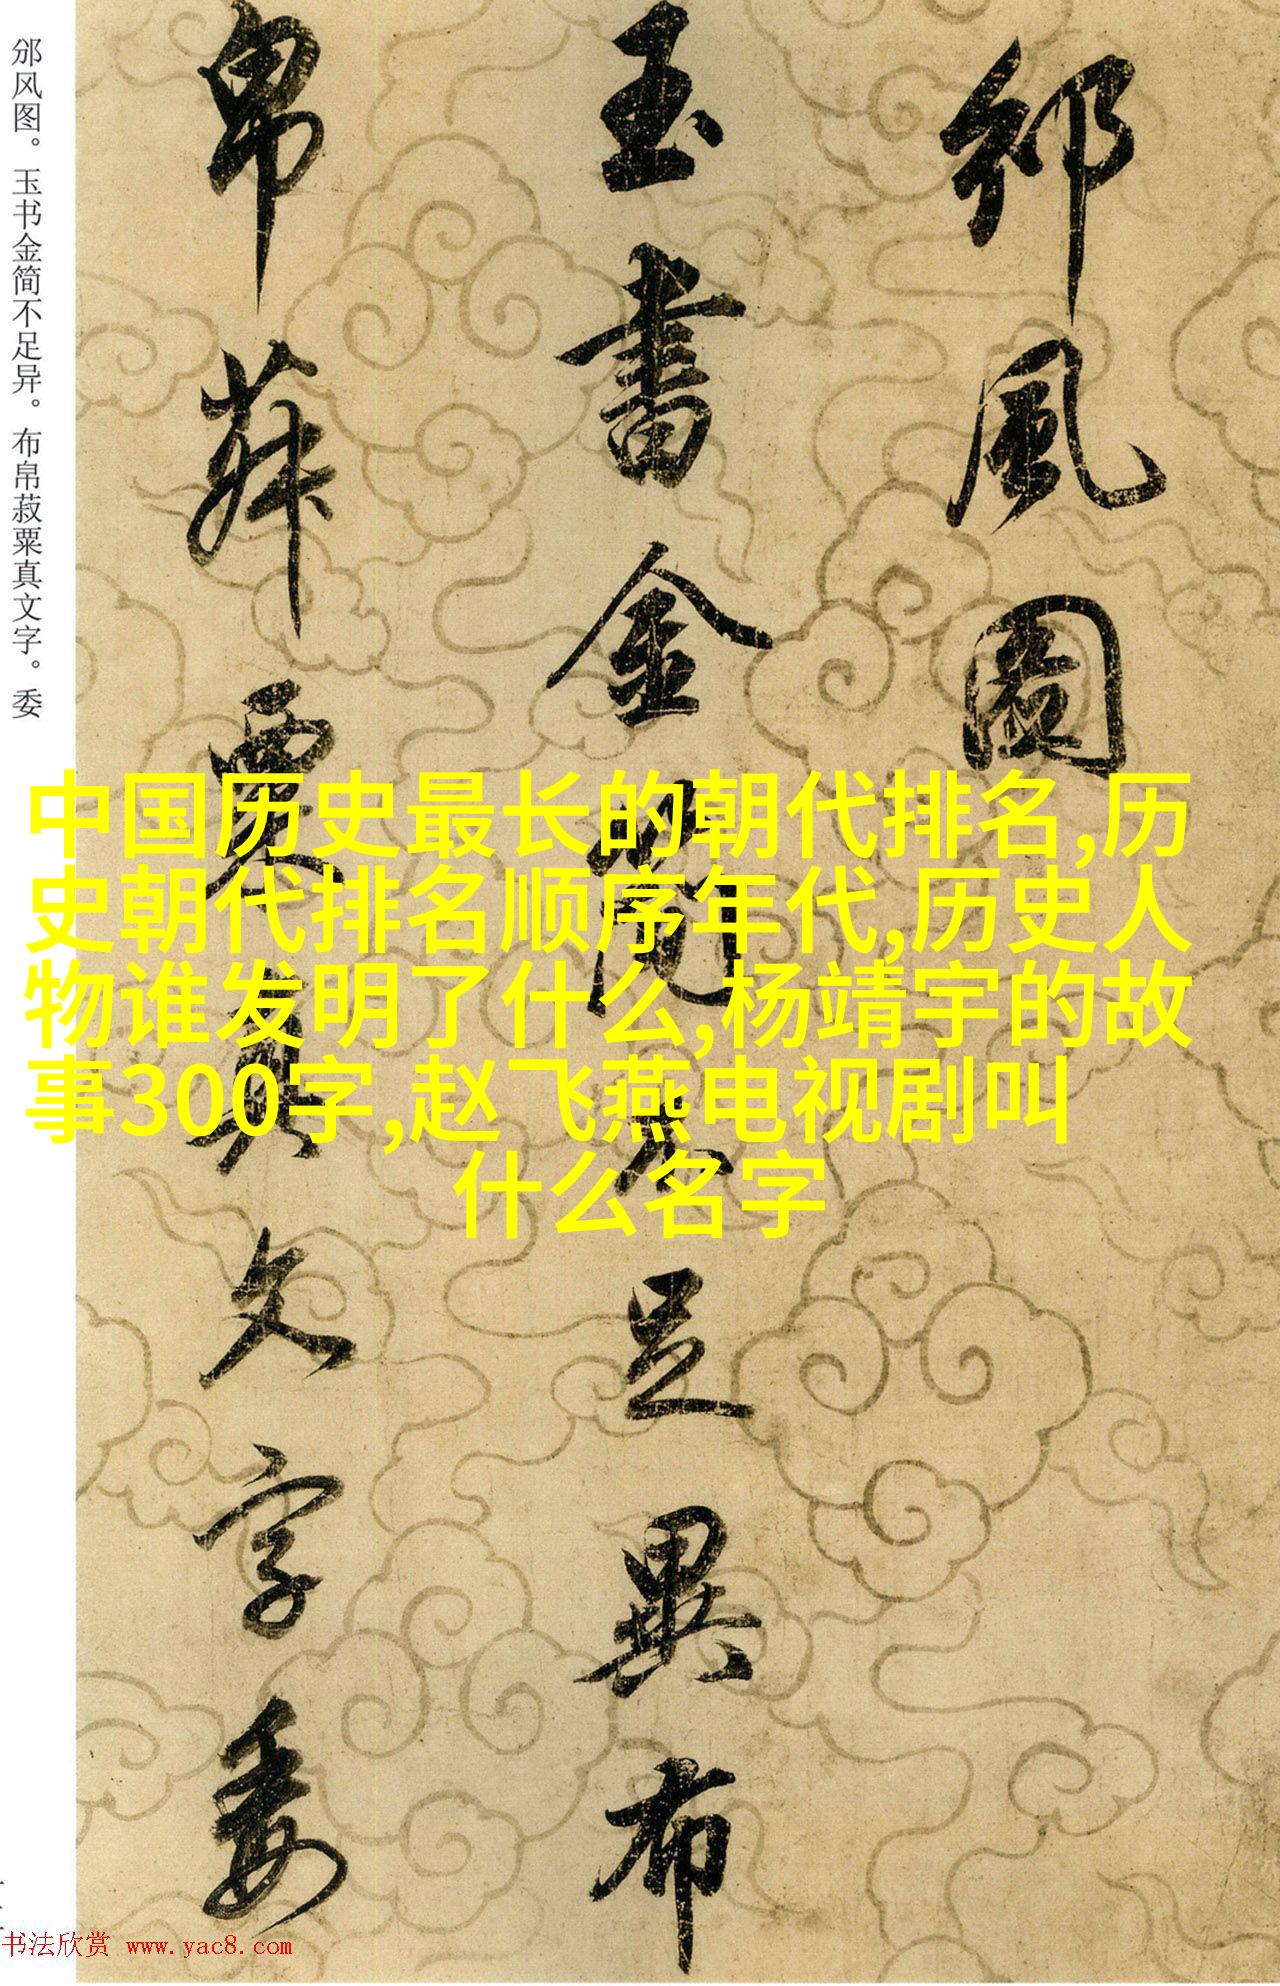 邠風圖
玉書金簡不足異布
帛菽粟真文字委
邠风图。玉书金简不足异。布帛菽粟真文字。委
中国历史最长的朝代排名,历
史朝代排名顺序年代,历史人
物谁发明了什么,杨靖宇的故
事300字,赵飞燕电视剧叫
什么名字
书法欣赏 www.yac8.com